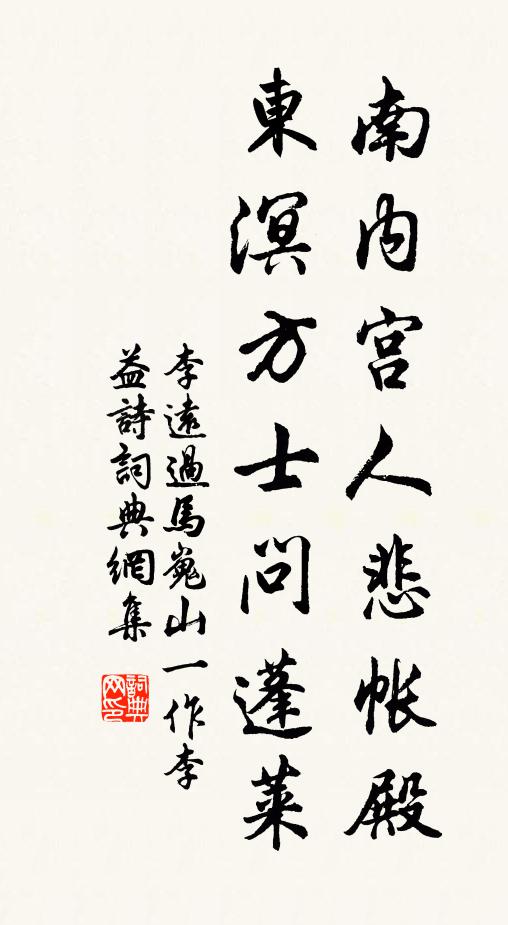 南内宫人悲帐殿
東溟方士问蓬萊
李遠過馬嵬山一作李
益詩詞典網集
詞典网印